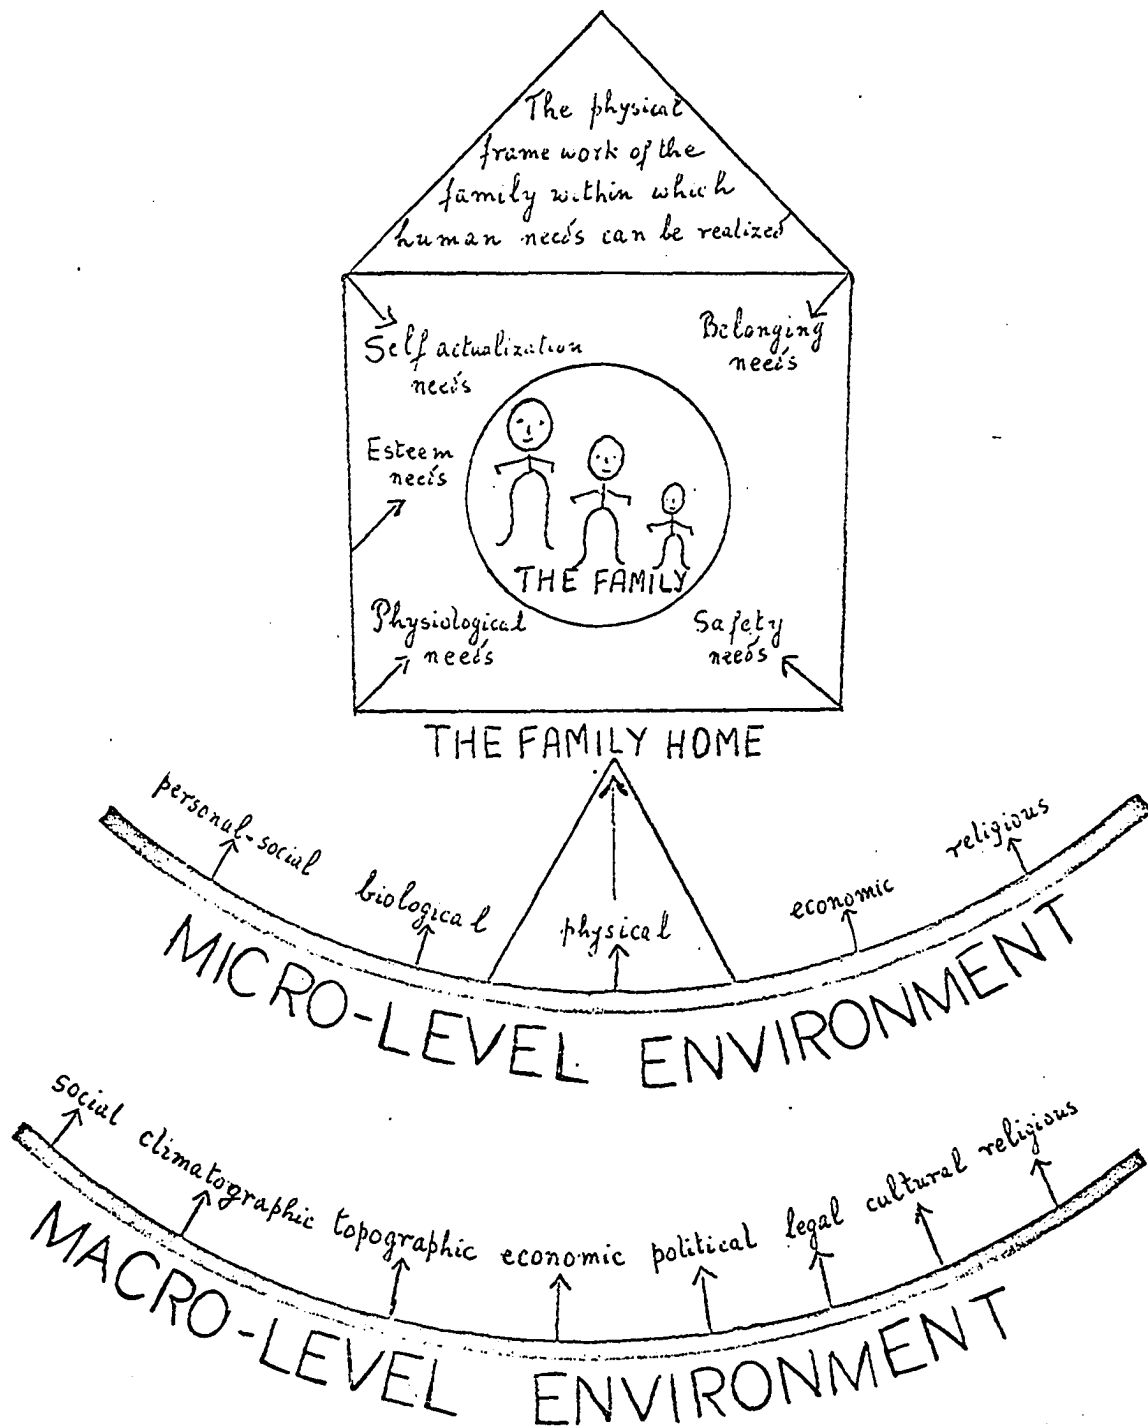 The physical
frame work of the
family within which
human needs can be realized
Self actualization
needs
Belonging
needs
Esteem
needs
THE FAMILY
Physiological
needs
Safety
needs
THE FAMILY HOME
personal-social
biological
physical
economic
religious
MICRO-LEVEL ENVIRONMENT
social climatographic topographic economic political legal cultural religious
MACRO-LEVEL ENVIRONMENT